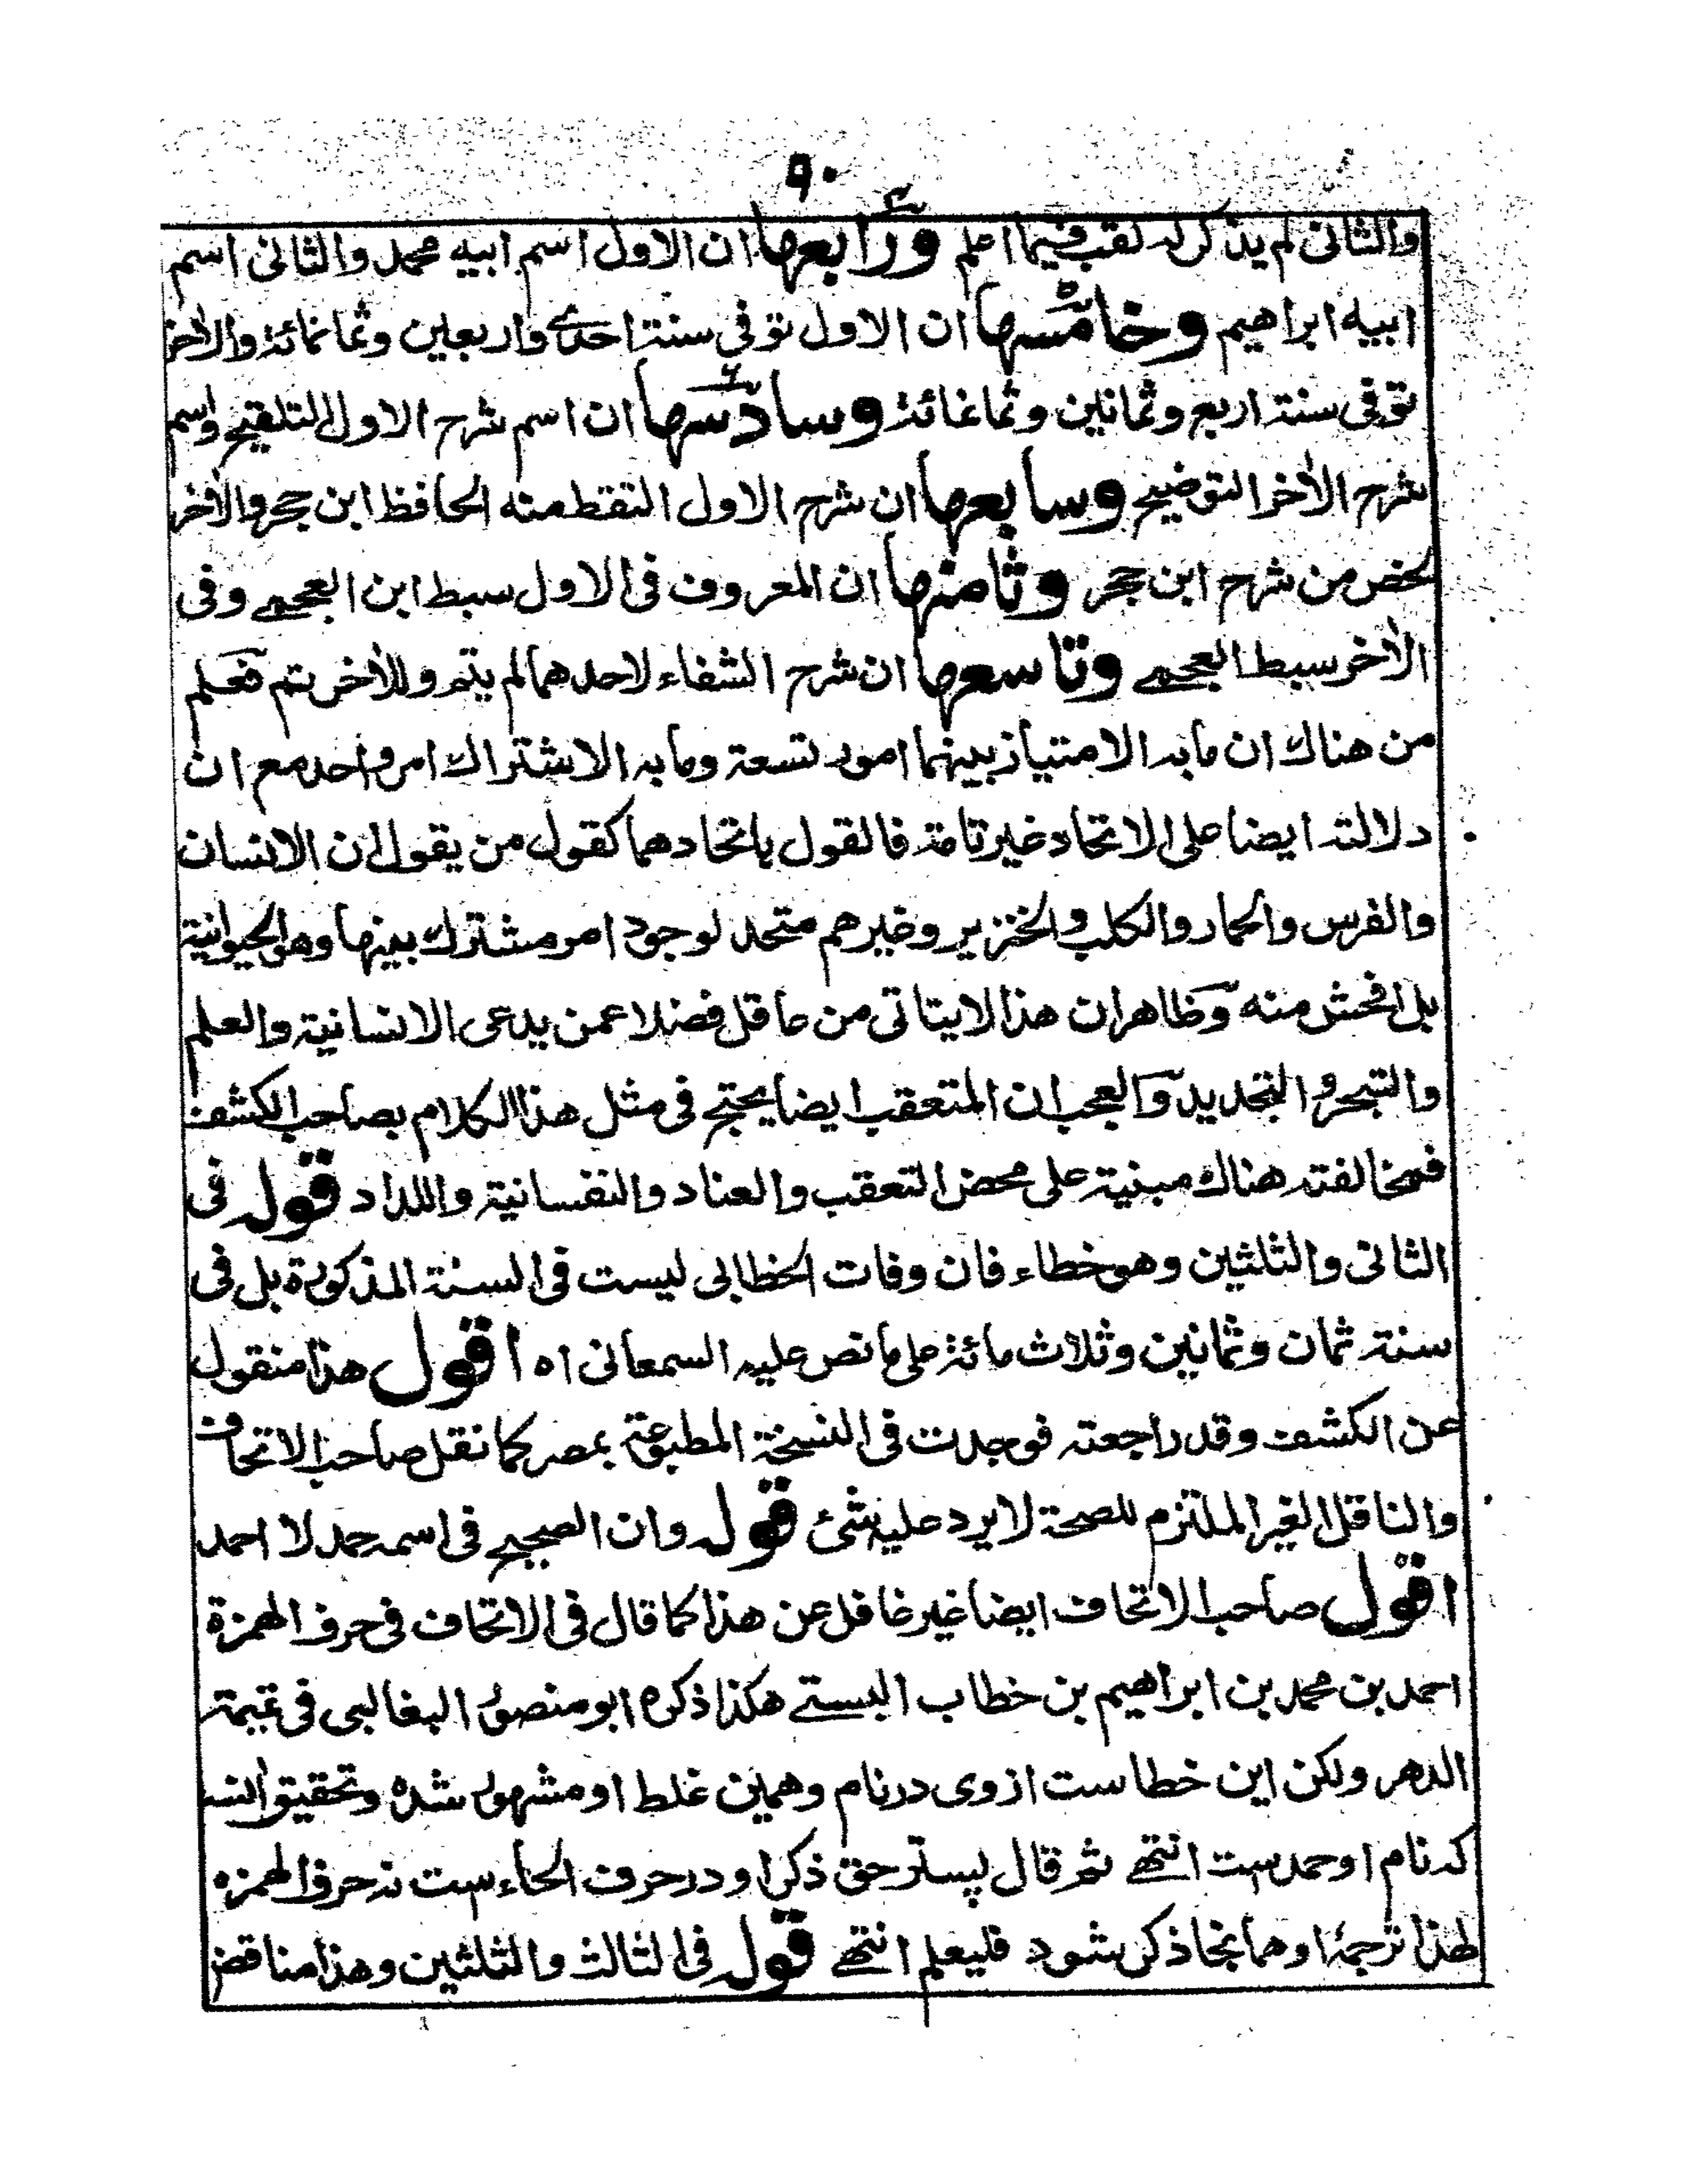 ٩٠
والثانى لم يذكر له لقب فيما اعلم ورابعها ان الاول اسم ابيه محمد والثانى اسم
ابيه ابراهيم وخامسها ان الاول توفى سنة احدى واربعين وثمانمائة والاخر
توفى سنة اربع وثمانين وثمانمائة وسادسها ان اسم شرح الاول التلقيح واسم
شرح الاخر التوضيح وسابعها ان شرح الاول التقط منه الحافظ ابن حجر والاخر
لخص من شرح ابن حجر وثامنها ان المعروف فى الاول سبط ابن العجمى وفى
الاخر سبط العجمى وتاسعها ان شرح الشفاء لاحدهما لم يتم وللاخر يتم فعلم
من هناك ان مابه الامتياز بينهما امور تسعة ومابه الاشتراك امر واحد مع ان
دلالته ايضا على الاتحاد غير تامة فالقول باتحادهما كقول من يقول ان الانسان
والفرس والحمار والكلب والخنزير وغيرهم متحد لوجود امر مشترك بينها وهو الحيوانية
بل افحش منه وظاهر ان هذا لايتاتى من عاقل فضلا عمن يدعى الانسانية والعلم
والتبحر والتجديد والعجب ان المتعقب ايضا يحتج فى مثل هذا الكلام بصاحب الكشف
فمخالفته هناك مبنية على محض التعقب والعناد والنفسانية واللداد قوله فى
الثانى والثلثين وهو خطاء فان وفات الخطابى ليست فى السنة المذكورة بل فى
سنة ثمان وثمانين وثلاث مائة على مانص عليه السمعانى اه اقول هذا منقول
عن الكشف وقد راجعته فوجدت فى النسخة المطبوعة بمصر كما نقل صاحب الاتحاف
والناقل الغير الملتزم للصحة لايرد عليه شئ قوله وان الصحيح فى اسمه حمد لا احمد
اقول صاحب الاتحاف ايضا غير غافل عن هذا كما قال فى الاتحاف فى حرف الهمزة
احمد بن محمد بن ابراهيم بن خطاب البستى هكذا ذكره ابو منصور البغالبى فى يتيمة
الدهر ولكن اين خطاست ازوى درنام وهمين غلط او مشهور شده وتحقيق انست
كه نام او حمدست انتهى ثم قال پستر حق ذكر او در حرف الحاء ست نه حرف الهمزه
لهذا ترجمۀ او همانجا ذكر شود فليعلم انتهى قوله فى الثالث والثلثين وهذا مناقض